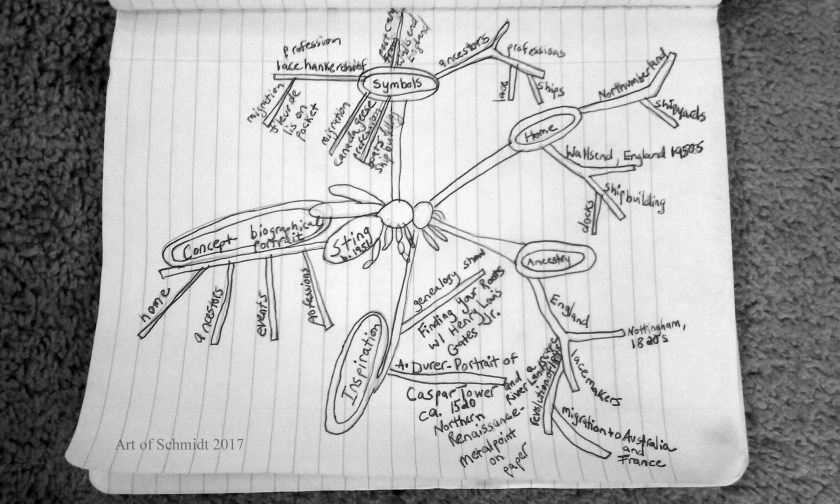 profession
lace hankershief
migration
fleur de
lis on
pocket
port city
Wallsend
England
Symbols
migration
Canada geese
profession
boats
shipbuilding
ancestors
professions
lace
ships
Home
Northumberland
shipyards
Wallsend, England 1950s
shipbuilding
docks
Concept biographical
portrait
home
ancestors
events
professions
Sting
b. 1951
Ancestry
England
Nottingham,
1820s
lacemakers
migration to Australia
and
France
Inspiration
genealogy show
Finding Your Roots
w/ Henry Louis
Gates Jr.
A. Durer-Portrait of
Caspar Tower
and a
River Landscape
ca. 1520
Northern
Renaissance-
metalpoint
on
paper
Art of Schmidt 2017